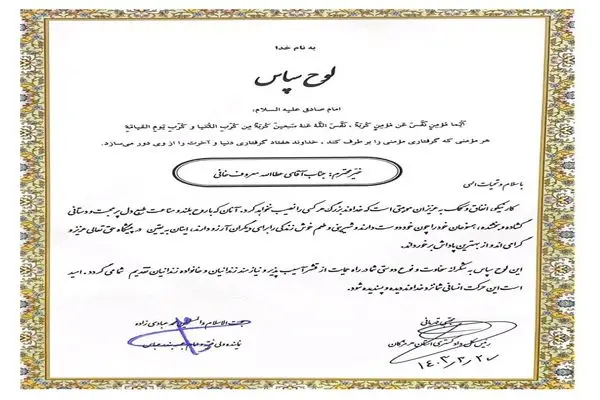 به نام خدا
لوح سپاس
امام صادق علیه السلام:
أَیُّما مُؤمِنٍ نَفَّسَ عَن مُؤمِنٍ کُربَةً ، نَفَّسَ اللَّهُ عَنهُ سَبعینَ کُربَةً مِن کُرَبِ الدُّنیا وَ کُرَبِ یَومِ القیامَةِ
هر مؤمنی که گرفتاری مؤمنی را بر طرف کند ، خداوند هفتاد گرفتاری دنیا و آخرت را از وی دور می‌سازد.
خیّر محترم: جناب آقای عطاالله معروف خانی
با سلام و تحیات الهی
کار نیکو، انفاق و کمک به عزیزان موهبتی است که خداوند بزرگ هر کسی را نصیب نخواهد کرد. آنان که با روح بلند و مناعت طبع و دل پر محبت و دستانی
گشاده و بخشنده، همنوعان خود را چون خود دوست دارند و شیرینی و طعم خوش زندگی را برای دیگران آرزو دارند، اینان به یقین در پیشگاه حق تعالی عزیز و
گرامی اند و از بهترین پاداش برخوردارند.
این لوح سپاس به شکرانه سخاوت و نوع دوستی شما در راه حمایت از قشر آسیب پذیر و نیازمند زندانیان و خانواده زندانیان تقدیم شما می گردد. امید
است این حرکت انسانی شما نزد خداوند دیده و پسندیده شود.
مجتبی قهرمانی
رئیس کل دادگستری استان هرمزگان
۱۴۰۳,۳,۲۷
حجت الاسلام والمسلمین محمد عبادی زاده
نماینده ولی فقیه و امام جمعه بندرعباس